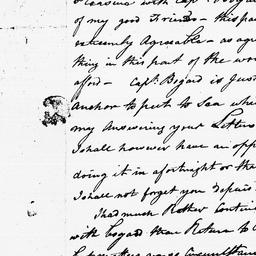 of my good Friends - this pa
extreemly Agreable - as agre
thing in this part of the wor
afford - Capt. Bogard is Just
Anchor to put to Sea whe
my Answering your Letters
I shall however have an opp
doing it in a fortnight or the
I shall not forget your
I had much Rather Contin
with Bogard than Return to